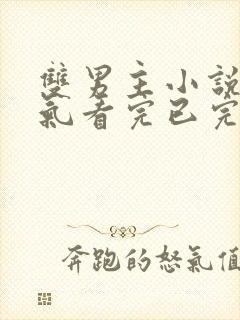 雙男主小說
氣看完已完
奔跑的怒氣值